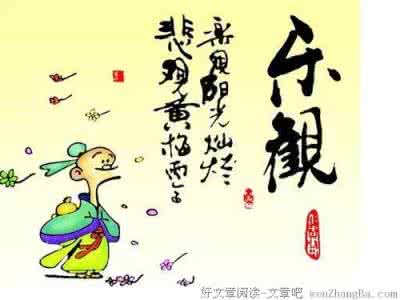 乐観
乐观阳光灿烂
悲观黄梅雨
好文章阅读-文章吧 wenZhangBa.com